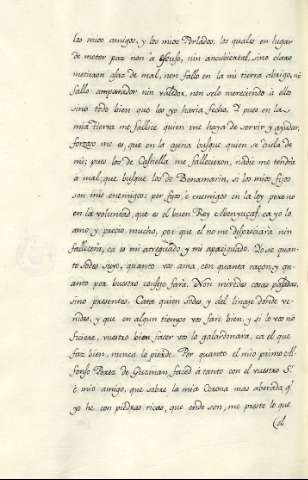 los mios amigos, y los mios Perlados, los quales en lugar
de meter paz non á escuso, nin ancubiertas, sino claro
metieron asaz de mal, non fallo en la mi tierra abrigo, ni
fallo amparador nin valedor, non selo mereciendo á ellos
sino todo bien que les yo havia fecho. Y pues en la
mia tierra me fallece quien me haya de servir y ayudar
forzoso me es, que en la agena busque quien se duela de
mi; pues los de Castella me fallecieron, nadie me tendra
á mal, que busque los de Benamarin, si los mios fijos
son mis enemigos: por fijos, é enemigos en la ley, pero no
en la voluntad, que es el buen Rey Abenyuçaf, ca yo lo
amo y precio mucho, por que el no me despreciará nin
fallecerá, ca es mi atreguado y mi apaciguado. Yo se quan-
to sodes suyo, quanto vos ama, con quanta razon, y qu-
anto por vuestro consejo fará. Non miredes cosas pasadas,
sino presentes. Cata quien sodes y del linaje donde ve-
nides, y que en algun tiempo vos faré bien, y si lo vos no
ficiese, vuestro bien facer vos lo galardonara, ca el que
faz bien, nunca lo pierde. Por quanto el mio primo Al-
fonso Perez de Guzman faced á tanto con el vuestro Sr.
é mio amigo, que sobre la mia Corona mas aberada q.
yo hé con piedras ricas, que ende son, me preste lo que
(el